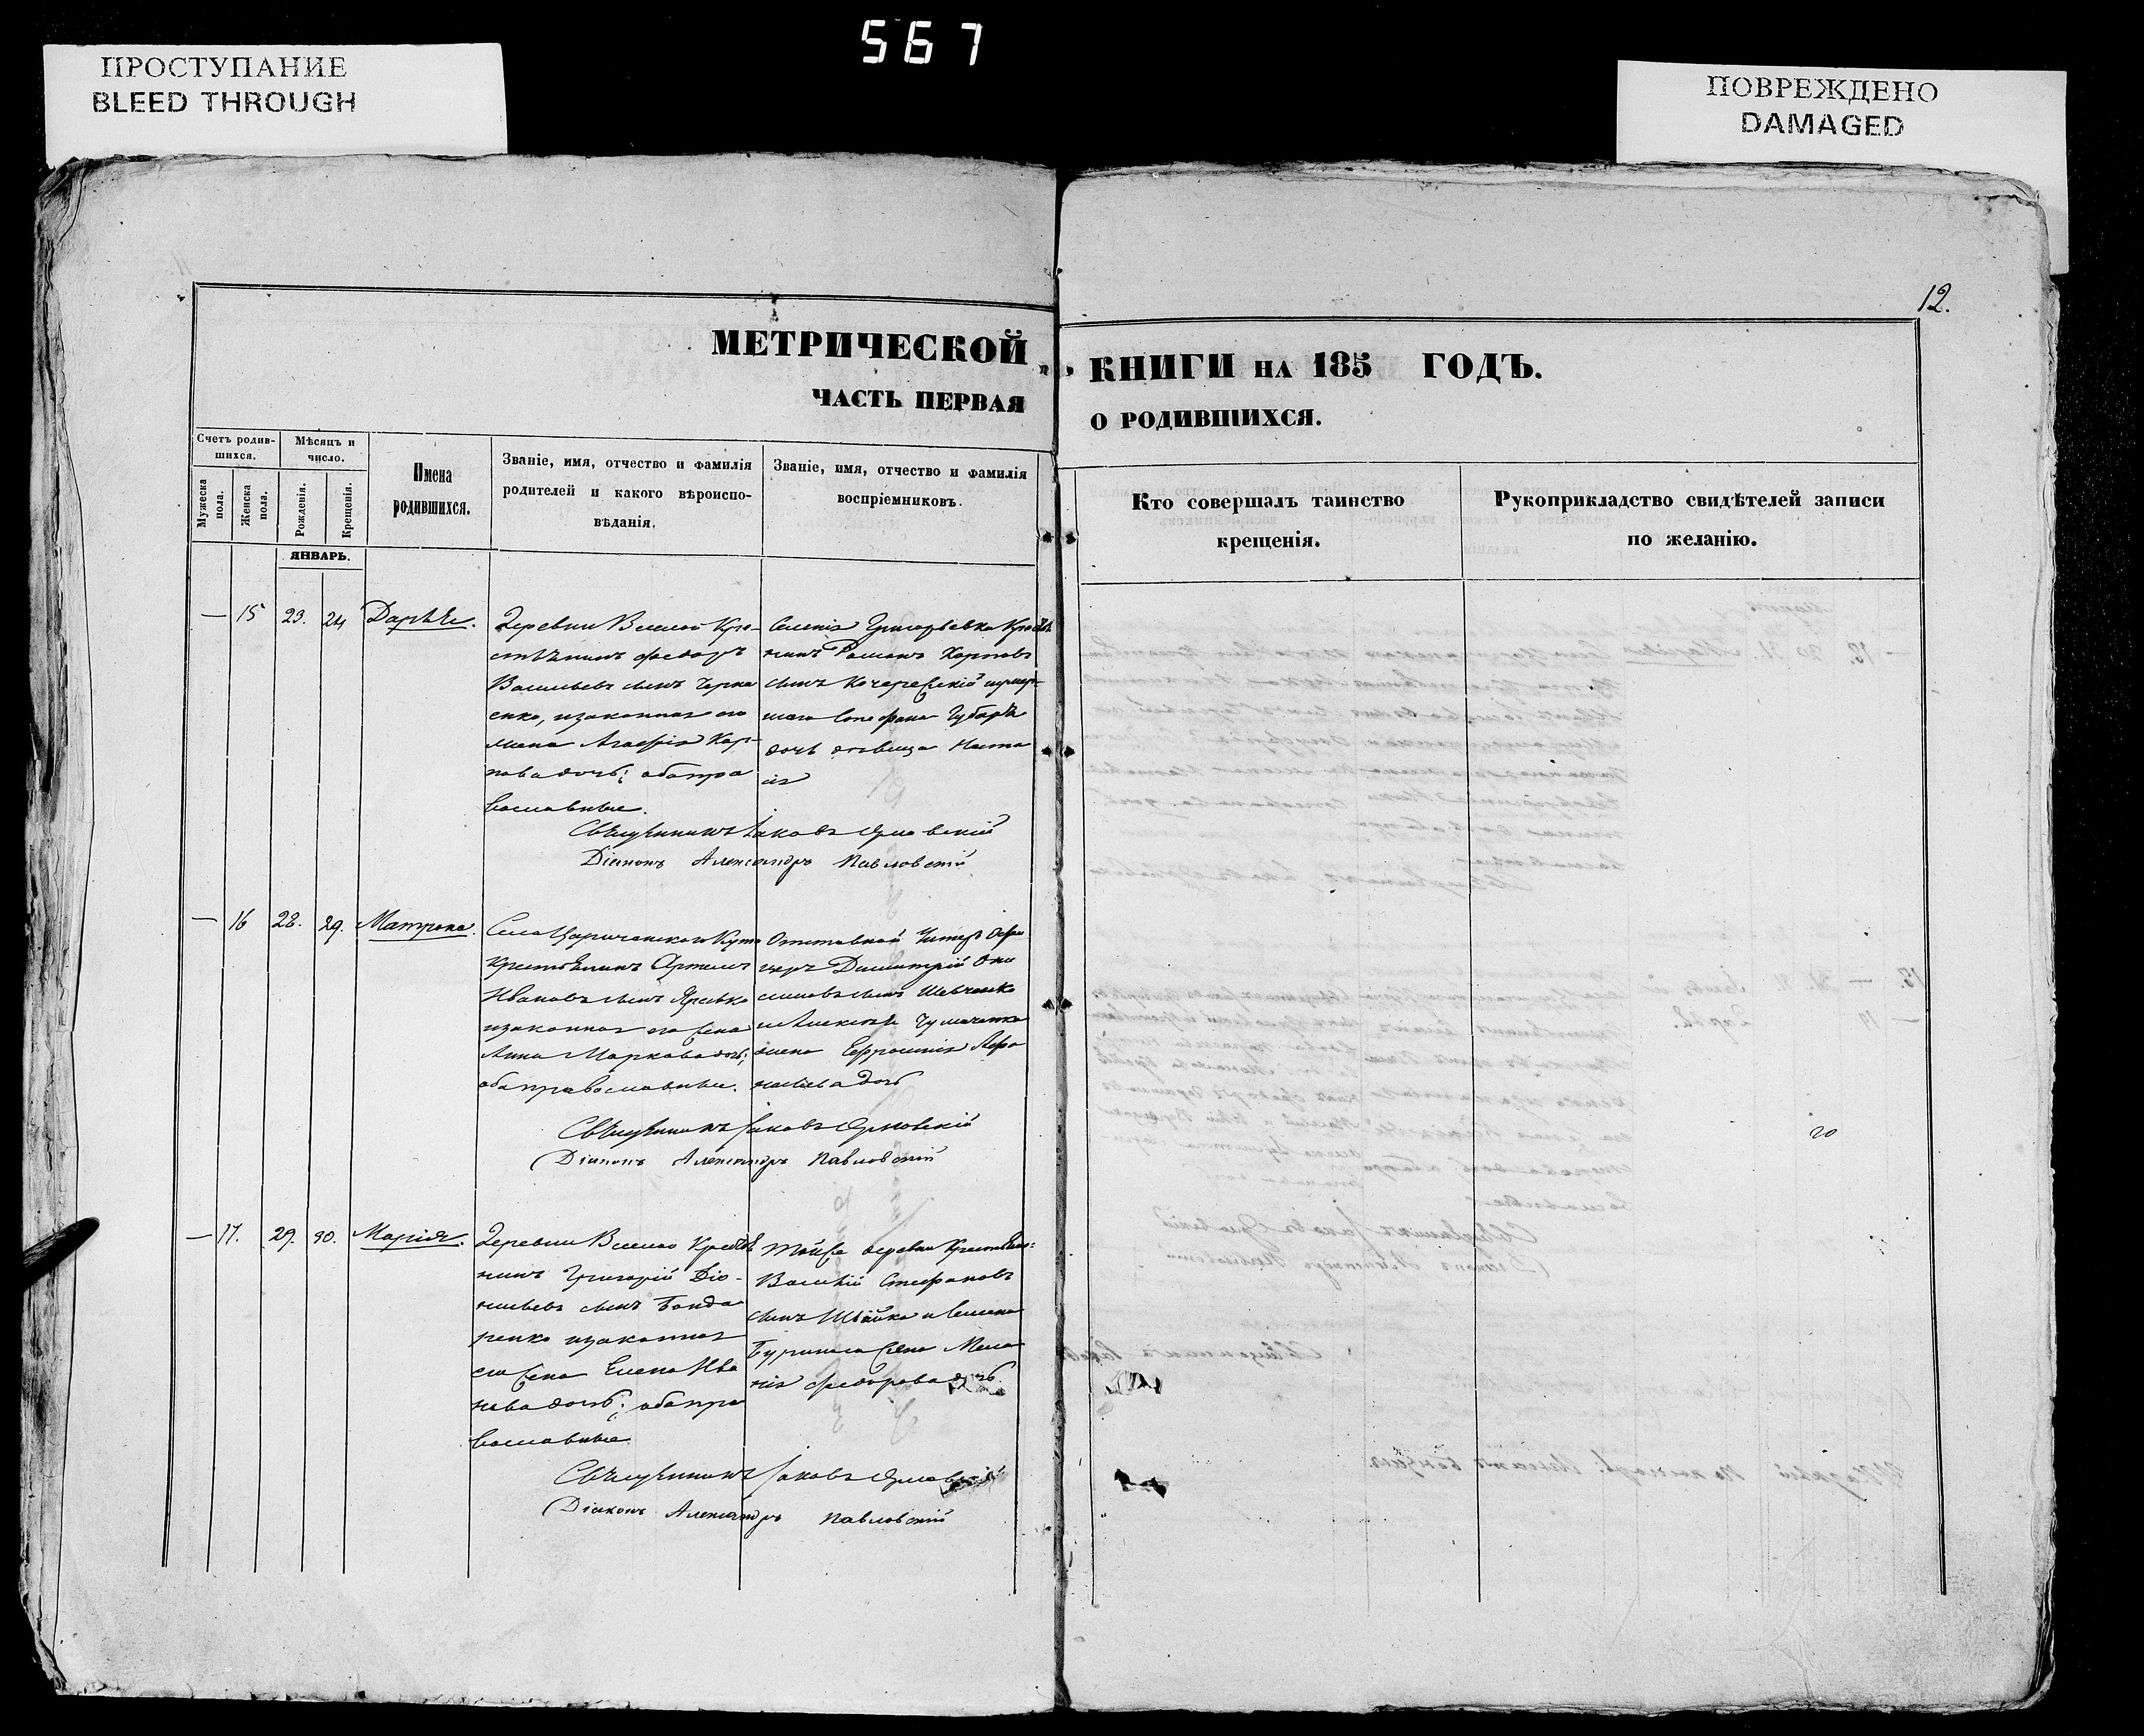 567
ПРОСТУПАНИЕ
BLEED THROUGH
ПОВРЕЖДЕНО
DAMAGED
12.
МЕТРИЧЕСКОЙ КНИГИ НА 185 ГОДЪ.
ЧАСТЬ ПЕРВАЯ О РОДИВШИХСЯ.
Счетъ родив-
шихся.
Мужеска пола.
Женска пола.
Мѣсяцъ и
число.
Рожденія.
Крещенія.
Имена
родившихся.
Званіе, имя, отчество и фамилія
родителей и какого вѣроиспо-
вѣданія.
Званіе, имя, отчество и фамилія
воспріемниковъ.
Кто совершалъ таинство
крещенія.
Рукоприкладство свидѣтелей записи
по желанію.
ЯНВАРЬ.
— 15 23. 24 Дарья.
Деревни Веселой Кре-
стьянинъ Федоръ
Васильевъ сынъ Черка
енко, изаконная его
жена Агафія Кар-
пова дочь; оба пра
вославные.
Селенія Григорьевка Крестья
нинъ Романъ Карповъ
сынъ
Стефана Губаря
дочь девица Наста
сія
Священникъ Іаковъ Орловскій
Діаконъ Александръ Павловскій
— 16 28. 29. Матрона.
Села Царичанского Кута
крестьянинъ Артемъ
Ивановъ сынъ
изаконная его жена
Анна Маркова дочь;
оба православные.
Отставной Унтеръ Офи
церъ Димитрій Они
симовъ сынъ Шевченко
и Алексея Чумаченка
жена Евфросинія Афа
насіева дочь
Священникъ Іаковъ Орловскій
Діаконъ Александръ Павловскій
— 17. 29. 30. Марія.
Деревни Веселой Крестья
нинъ Григорій Діо-
нисьевъ сынъ Бонда
ренко изаконная
его жена Елена Ива
нова дочь; оба пра
вославные
Тойже деревни Крестьянинъ
Василій Стефановъ
сынъ Швайка и Семена
жена Мела
нія Федорова дочь.
Священникъ Іаковъ Орловскій
Діаконъ Александръ Павловскій
20